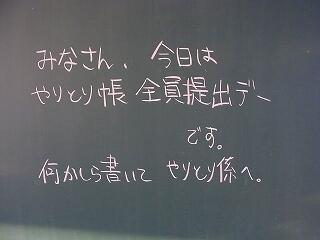 みなさん、今日は
やりとり帳 全員提出デー
です。
何かしら書いて やりとり係へ。